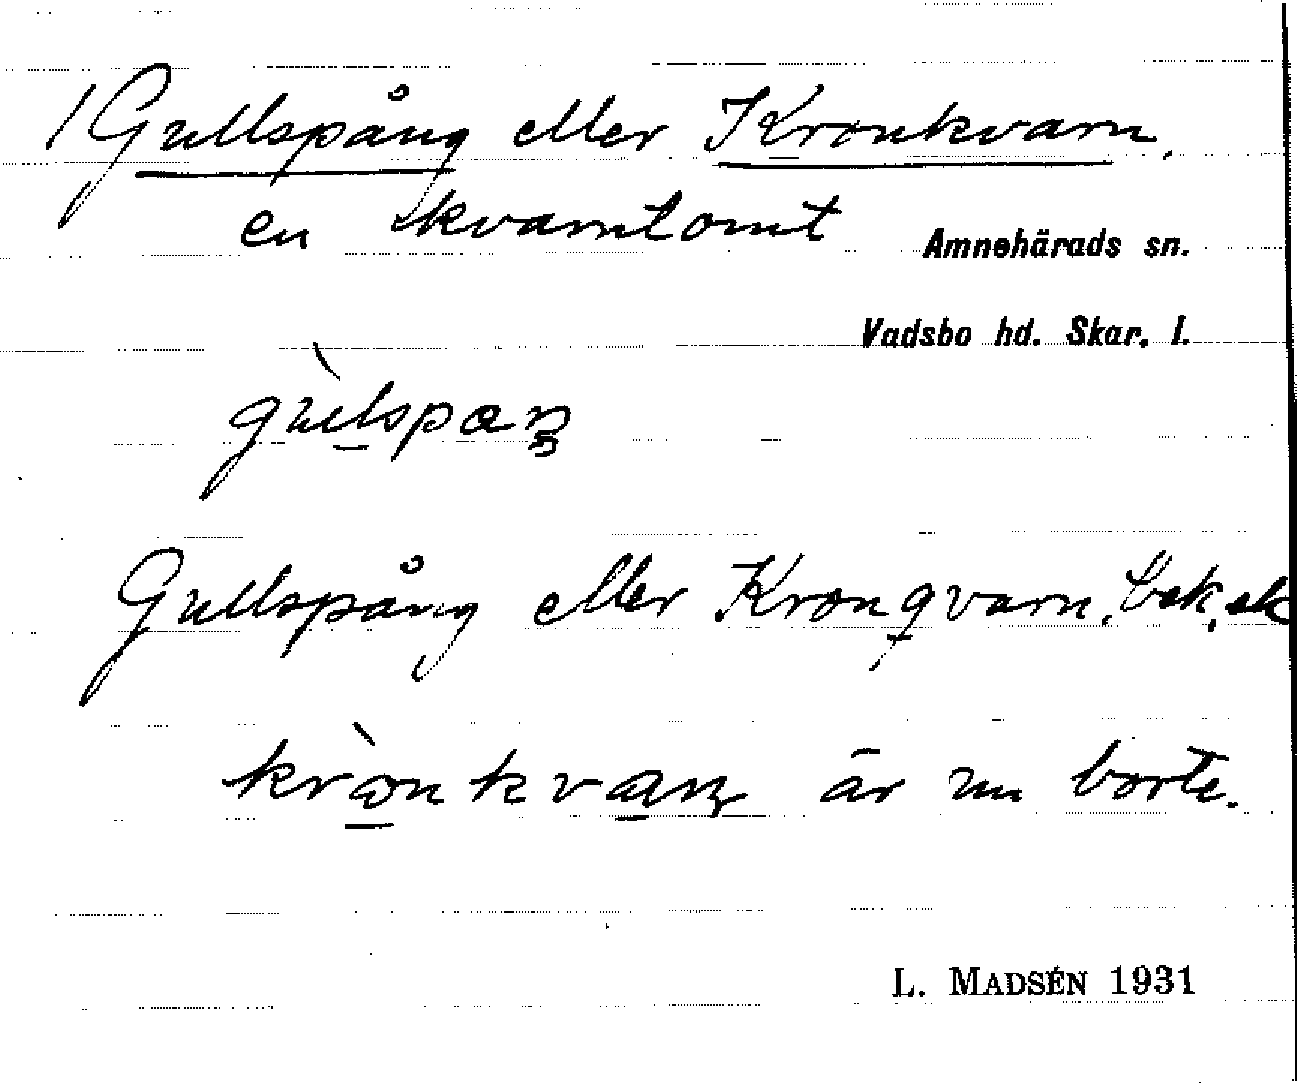 1 Gullspång eller Kronkvarn.
en kvarntomt
Amnehärads sn.
Vadsbo hd. Skar. l.
Gullspång eller Kronqvarn, bek. ek
är nu borta.
L. MADSÉN 1931